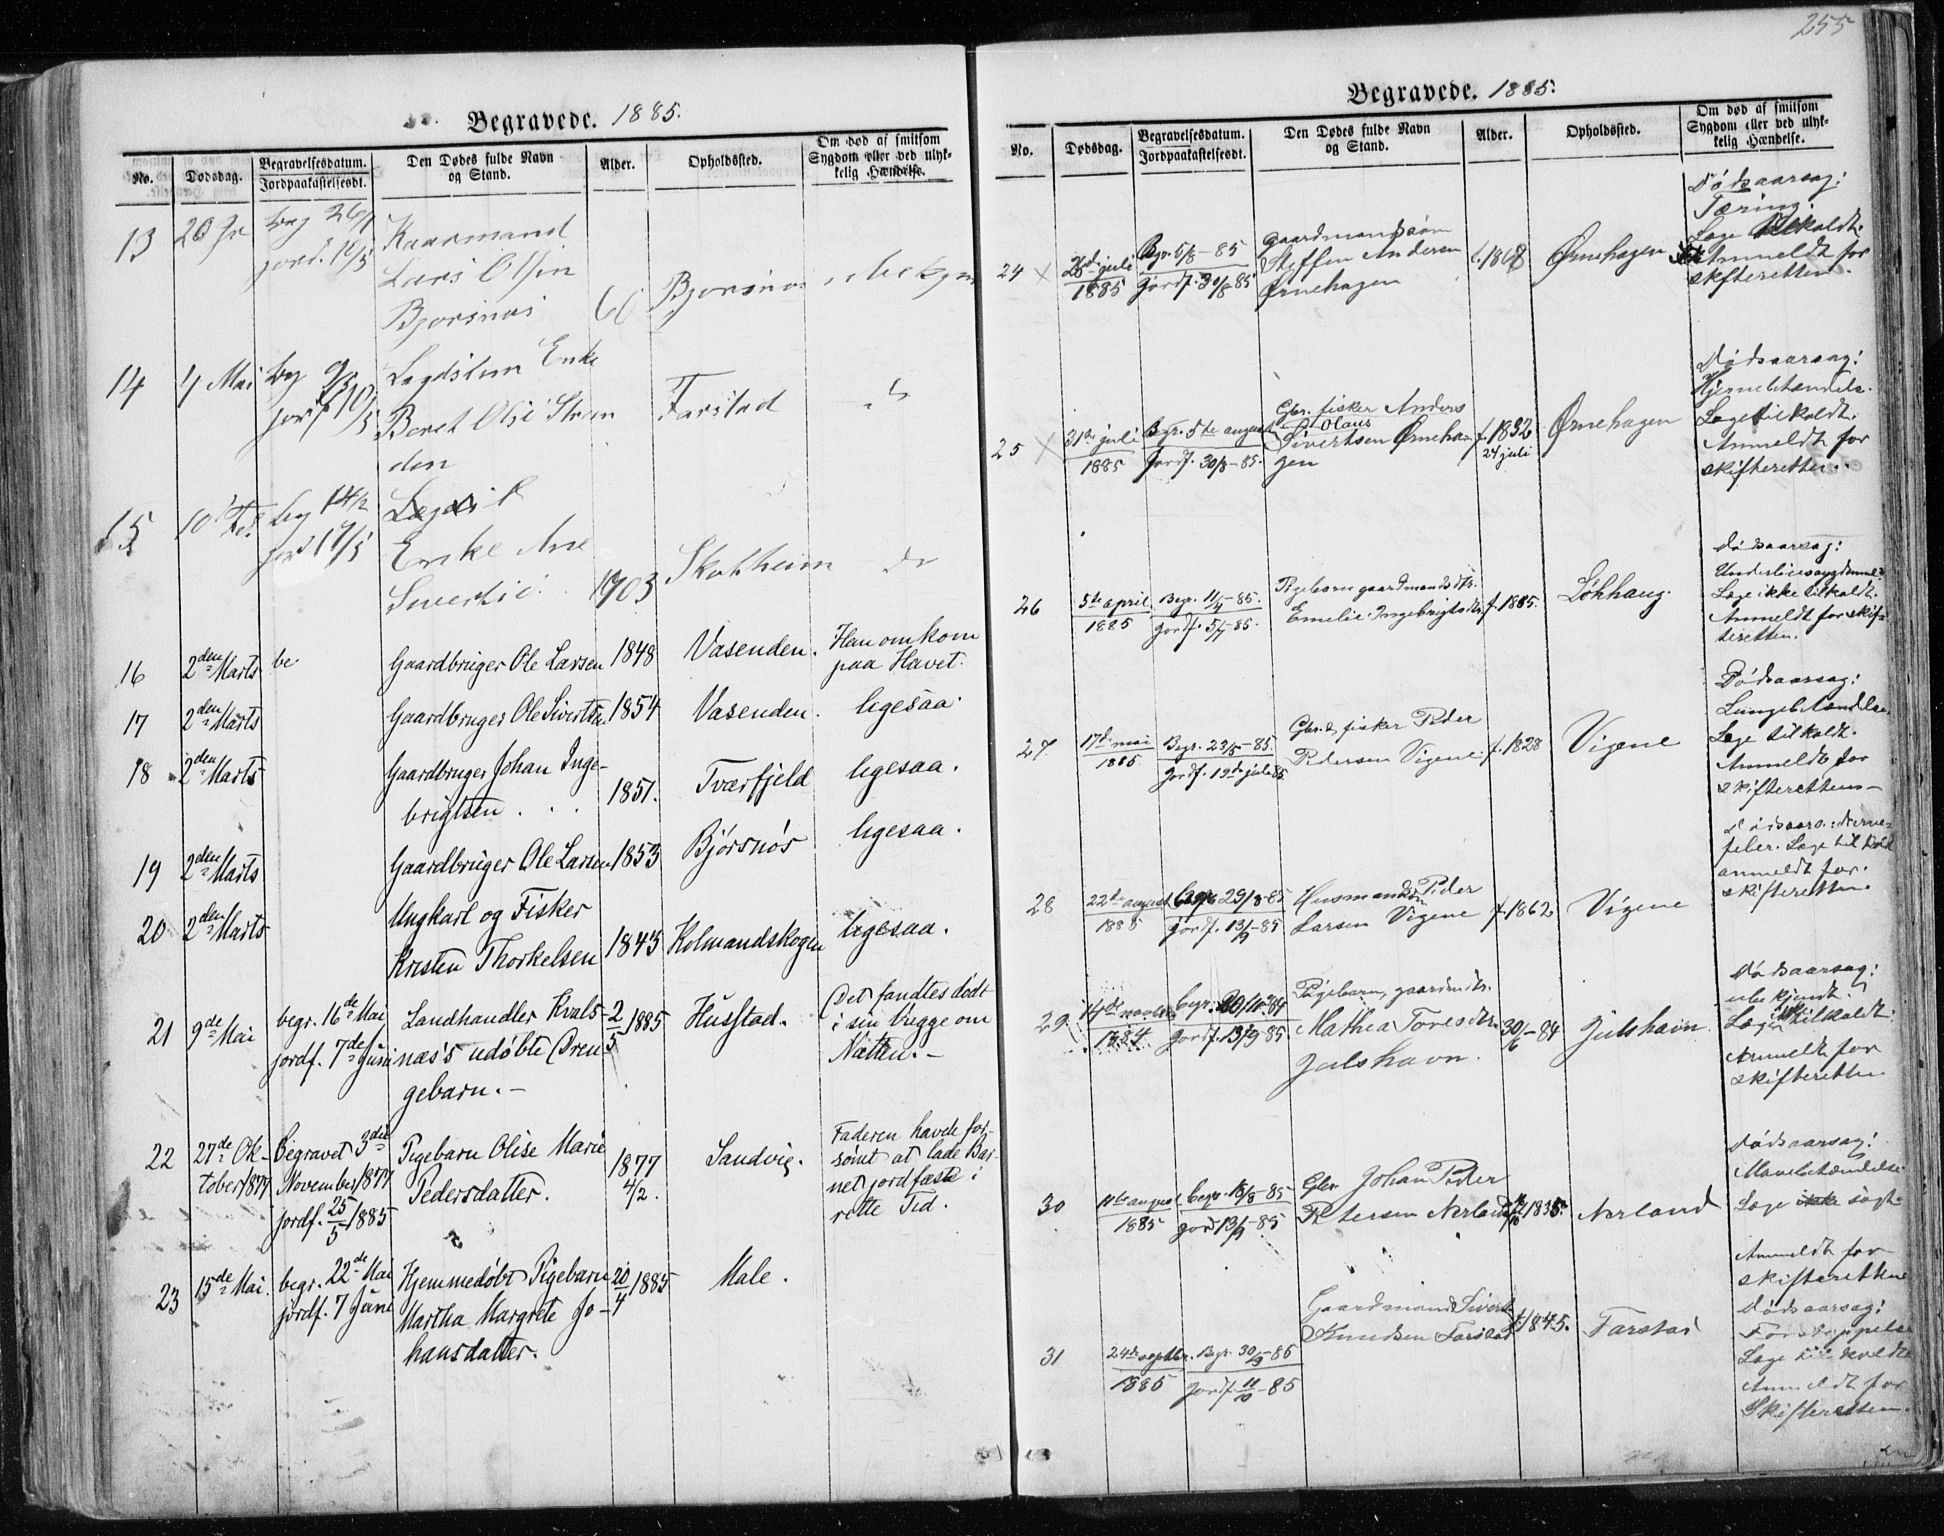 Begravede. 1885.
No. Dødsdag. Begravelsesdatum. Jordpaakastelsesdt. Den Dødes fulde Navn og Stand. Alder. Opholdssted. Om død af smitsom Sygdom eller ved ulykkelig Hændelse.
13 20 begr 26/1 Kaarmand
jord. 10/5 Lars Olsen Bjorsnos
Bjorsnos 60
14 4 Mai beg 9/5 Lægdslem Enke
jordf 10/5 Beret Olsd Stran Farstad do
den
15 10 Feb beg 14/2 Lægdsl
jord 17/5 Enke Ane Skotheim do
Sivertsd. 1803
16 2den Marts be Gaardbruger Ole Larsen 1848 Vasenden. Han omkom
paa Havet.
17 2den Marts Gaardbruger Ole Sivertsen 1854 Vasenden. ligesaa.
18 2den Marts Gaardbruger Johan Inge-
brigtsen 1851. Tværfjeld ligesaa.
19 2den Marts Gaardbruger Ole Larsen 1853 Bjørsnøs ligesaa.
20 2den Marts Ungkarl og Fisker
Kristen Thorkelsen 1845 Kolmandskogen ligesaa.
21 9de Mai begr. 16de Mai Landhandler Kvals- 2/5 1885 Husstad. Det fandtes dødt
jordf. 7de Juni næs's udøbte Dren- i sin Vugge om
gebarn.- Natten.-
22 27de Ok- Begravet 3die Pigebarn Olise Marie 1877 Sandvig. Faderen havde for-
tober 1877 November 1877 Pedersdatter. 4/2. sømt at lade Bar-
jordf. 25/5 1885 net jordfæste i
rette Tid.
23 15de Mai. begr. 22de Mai Hjemmedøbt Pigebarn 20/4 1885 Male.
jordf. 7 Juni Martha Margrete Jo-
hansdatter.
255
Begravede. 1885.
No. Dødsdag. Begravelsesdatum. Jordpaakastelsesdt. Den Dødes fulde Navn og Stand. Alder. Opholdssted. Om død af smitsom Sygdom eller ved ulykkelig Hændelse.
Dødsaarsag:
Tæring.
24 juli Begr. 5/8-85 Gaardmandssøn f.1868 Ørnehagen Læge tilkaldt.
1885 Jordf. 30/8-85 Steffen Andersen Anmeldt for
Ørnehagen skifteretten.
Dødsaarsag:
Hjernebetændelse.
25 31te juli Begr. 5te august Gbr. fisker Anders Olaus f.1832 Ørnehagen Læge tilkaldt.
1885 Jordf. 30/8-85. Sivertsen Ørneha- 24 juli Anmeldt for
gen skifteretten.
Dødsaarsag:
Underlivssygdom
26 5te april Begr. 11/4-85. Pigebarn gaardmandsdtr. f.1885. Løhhaug. Læge ikke tilkaldt.
1885 Jordf. 5/7-85. Emelie Ingebrigtsdtr. Anmeldt for skif-
teretten.
Dødsaarsag:
Lungebetændelse.
27. 17de mai Begr. 23/5-85. Gbr. & fisker Peder f.1828 Vigene Læge tilkaldt.
1885 Jordf. 19de juli 85. Pedersen Vigene. Anmeldt for
skifteretten-
Dødsaars.: Nerve-
feber. Læge tilkaldt
28 22de august Begr. 29/8-85 Husmandssøn Peder f.1862 Vigene anmeldt for
1885 Jordf. 13/9-85 Larsen Vigene skifteretten.
Dødsaarsag:
ubekjendt.
29. 14de novbr. begr. 84 Pigebarn, gaardmdtr. 30/6-84 Julshavn. Læge tilkaldt.
1884 Jordf. 13/9-85. Mathea Toresdtr. Anmeldt for
Julshavn. skifteretten
Dødsaarsag:
Mavebetændelse
30 11te august begr. 18/8-85 Gbr. Johan Peder 1835. Nerland Læge ikke søgt.
1885 Jord 13/9-85 Petersen Nerland Anmeldt for
skifteretten
31 24de septbr. Begr. 30/9-85 Gaardmand Sivert f.1845. Farstad Dødsaarsag:
1885 Jordf. 11/10-85 Knudsen Farstad Forstoppelse
Læge tilkaldt
Anmeldt for
Skifteretten.